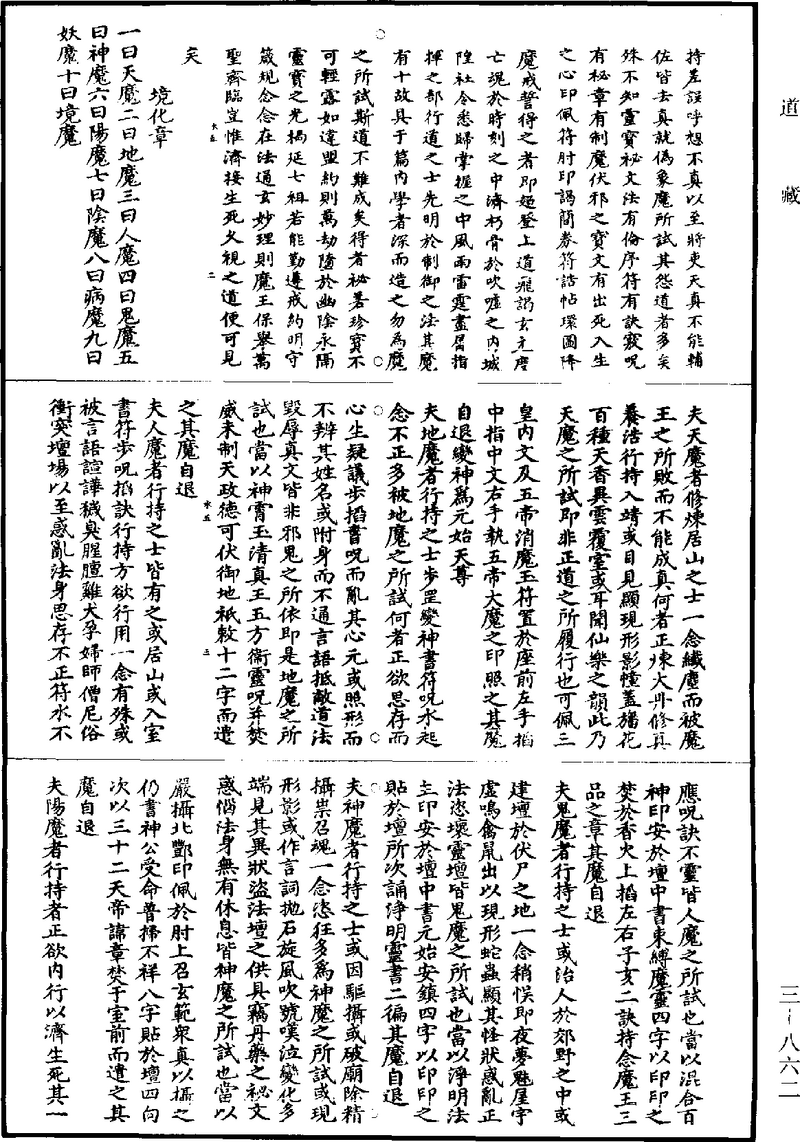 道藏
三-八六二
持差誤呼想不真以至將吏天真不能輔
佐皆去真就偽象魔所試其怨道者多矣
殊不知靈寶秘文法有倫序符有訣竅呪
有秘章有制魔伏邪之寶文有出死入生
之心印佩符肘印謁簡券符誥帖環圖降
魔戒誓得之者即超登上道飛謁玄元度
亡魂於時刻之中濟朽骨於吹噓之內城
隍社令悉歸掌握之中風雨雷霆盡屬指
揮之部行道之士先明於制御之法其魔
有十故具于篇內學者深而造之勿為魔
之所試斯道不難成矣得者祕若珍寶不
可輕露如違盟約則萬劫墮於幽陰永隔
靈寶之光禍延七祖若能勤遵戒約明守
箴規念念在法通玄妙理則魔王保舉萬
聖齊臨豈惟濟接生死久視之道便可見
矣
境化章
一曰天魔二曰地魔三曰人魔四曰鬼魔五
曰神魔六曰陽魔七曰陰魔八曰病魔九曰
妖魔十曰境魔
夫天魔者修煉居山之士一念纖塵而被魔
王之所敗而不能成真何者正煉大丹修真
養浩行持入靖或目見顯現形影幢蓋旛花
百種天香異雲覆室或耳聞仙樂之韻此乃
天魔之所試即非正道之所履行也可佩三
皇內文及五帝消魔玉符置於座前左手掐
中指中文右手執五帝大魔之印照之其魔
自退變神為元始天尊
夫地魔者行持之士步罡變神書符呪水起
念不正多被地魔之所試何者正欲思存而
心生疑議步掐書呪而亂其心元或照形而
不辨其姓名或附身而不通言語抵敵道法
毀辱真文皆非邪鬼之所依即是地魔之所
試也當以神霄玉清真王五方衛靈呪并焚
威未制天政德可伏御地祇敕十二字而遣
之其魔自退
夫人魔者行持之士皆有之或居山或入室
書符步呪掐訣行持方欲行用一念有殊或
被言語諠譁穢臭腥膻雞犬孕婦師僧尼俗
衝突壇場以至惑亂法身思存不正符水不
應呪訣不靈皆人魔之所試也當以混合百
神印安於壇中書束縛魔靈四字以印印之
焚於香火上掐左右子亥二訣持念魔王三
品之章其魔自退
夫鬼魔者行持之士或治人於郊野之中或
建壇於伏尸之地一念稍悮即夜夢魅屋宇
虛鳴禽鼠出以現形蛇蟲顯其怪狀惑亂正
法恣壞靈壇皆鬼魔之所試也當以淨明法
主印安於壇中書元始安鎮四字以印印之
貼於壇所次誦淨明靈書二徧其魔自退
夫神魔者行持之士或因驅攝或破廟除精
攝祟召魂一念恣狂多為神魔之所試或現
形影或作言詞拋石旋風吹號嘆泣變化多
端見其異狀盜法壇之供具竊丹藥之祕文
惑惱法身無有休息皆神魔之所試也當以
嚴攝北酆印佩於肘上召玄範眾真以攝之
仍書神公受命普掃不祥八字貼於壇四向
次以三十二天帝諱章焚于室前而遣之其
魔自退
夫陽魔者行持者正欲內行以濟生死其一